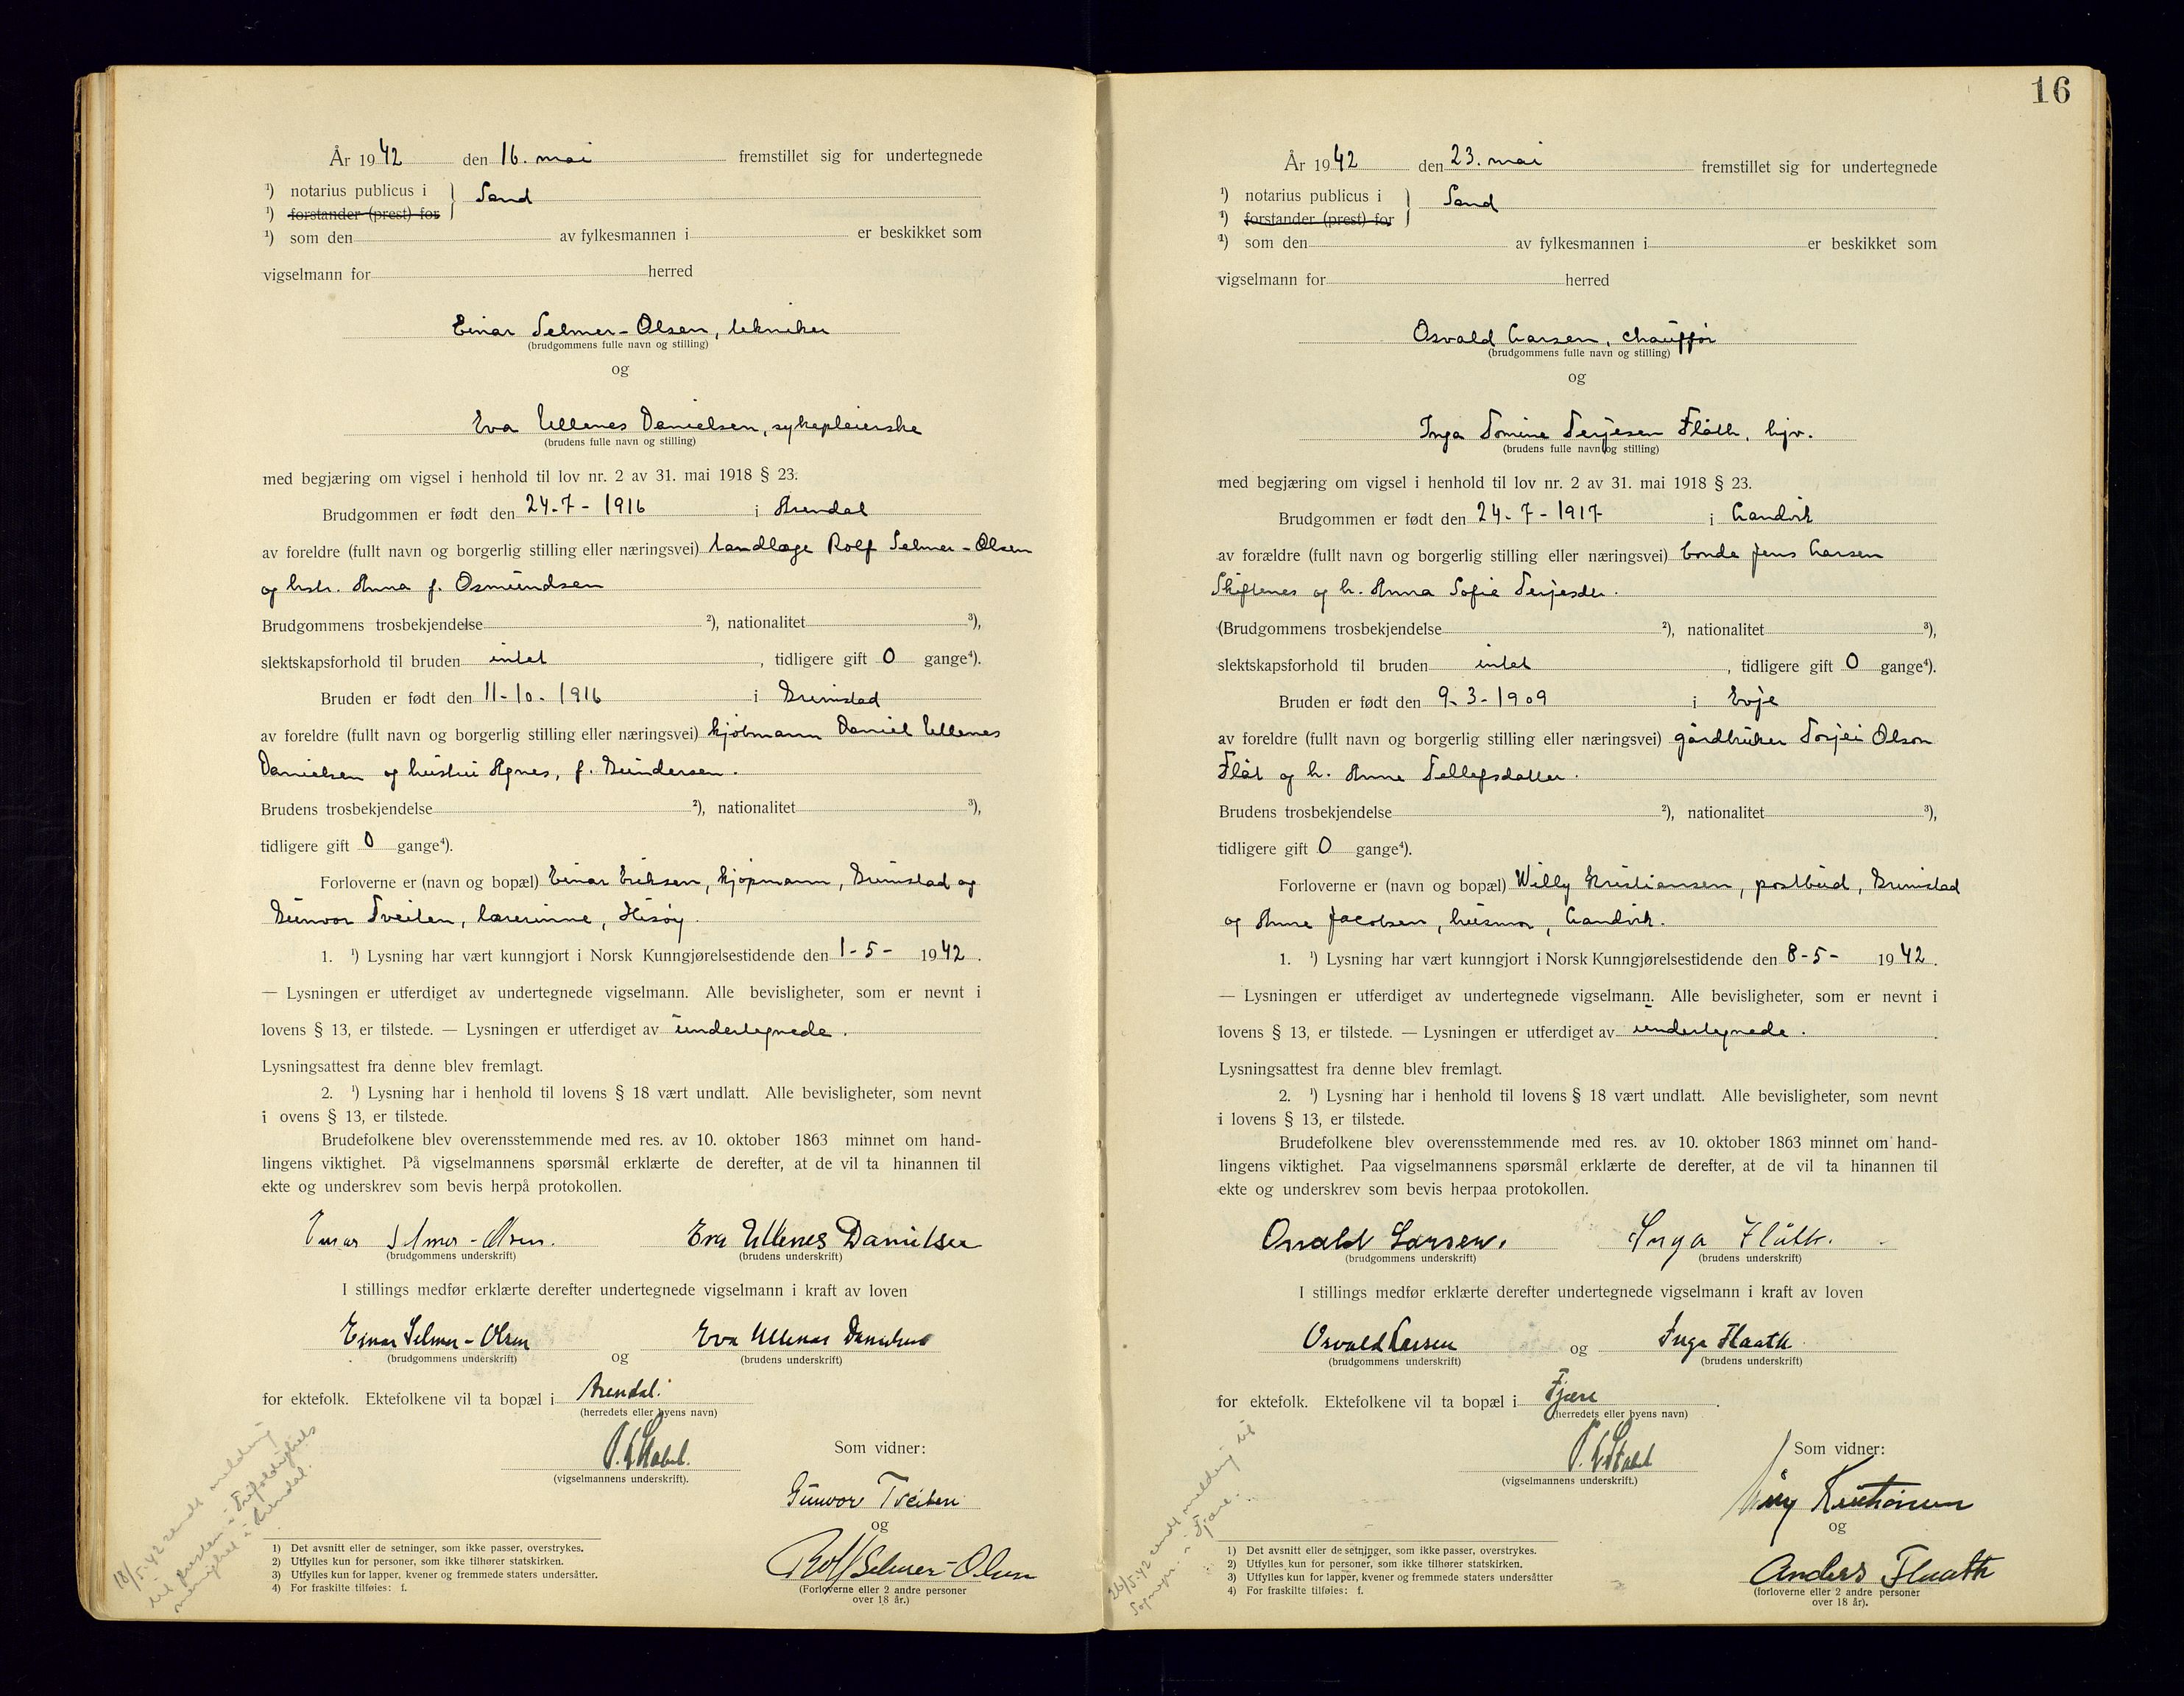 År 1942 den 16. mai fremstillet sig for undertegnede
¹) notarius publicus i } Sand
¹) forstander (prest) for
¹) som den av fylkesmannen i er beskikket som
vigselmann for herred
Einar Selmer-Olsen, tekniker
(brudgommens fulle navn og stilling)
og
Eva Ullenes Danielsen, sykepleierske
(brudens fulle navn og stilling)
med begjæring om vigsel i henhold til lov nr. 2 av 31. mai 1918 § 23.
Brudgommen er født den 24-7-1916 i Arendal
av foreldre (fullt navn og borgerlig stilling eller næringsvei) tandlæge Rolf Selmer-Olsen
og hstr. Anna f. Osmundsen
Brudgommens trosbekjendelse ²), nationalitet ³),
slektskapsforhold til bruden intet, tidligere gift 0 gange⁴).
Bruden er født den 11-10-1916 i Grimstad
av foreldre (fullt navn og borgerlig stilling eller næringsvei) kjøbmann Daniel Ullenes
Danielsen og hustru Agnes, f. Gundersen.
Brudens trosbekjendelse ²), nationalitet ³),
tidligere gift 0 gange⁴).
Forloverne er (navn og bopæl) Einar Eriksen, kjøpmann, Grimstad og
Gunvor Tveiten, lærerinne, Hisøy.
1. ¹) Lysning har vært kunngjort i Norsk Kunngjørelsestidende den 1-5- 1942.
— Lysningen er utferdiget av undertegnede vigselmann. Alle bevisligheter, som er nevnt i
lovens § 13, er tilstede. — Lysningen er utferdiget av undertegnede.
Lysningsattest fra denne blev fremlagt.
2. ¹) Lysning har i henhold til lovens § 18 vært undlatt. Alle bevisligheter, som nevnt
i ovens § 13, er tilstede.
Brudefolkene blev overensstemmende med res. av 10. oktober 1863 minnet om hand-
lingens viktighet. På vigselmannens spørsmål erklærte de derefter, at de vil ta hinannen til
ekte og underskrev som bevis herpå protokollen.
Einar Selmer-Olsen. Eva Ullenes Danielsen
(brudgommens underskrift) (brudens underskrift)
I stillings medfør erklærte derefter undertegnede vigselmann i kraft av loven
Einar Selmer-Olsen og Eva Ullenes Danielsen
(brudgommens underskrift) (brudens underskrift)
for ektefolk. Ektefolkene vil ta bopæl i Arendal.
(herredets eller byens navn)
Som vidner:
(vigselmannens underskrift).
Gunvor Tveiten
og
Rolf Selmer-Olsen
(Forloverne eller 2 andre personer
over 18 år.)
1) Det avsnitt eller de setninger, som ikke passer, overstrykes.
2) Utfylles kun for personer, som ikke tilhører statskirken.
3) Utfylles kun for lapper, kvener og fremmede staters undersåtter.
4) For fraskilte tilføies: f.
18/5-42 sendt melding
til presten i Trefoldighets
menighet i Arendal.
16
År 1942 den 23. mai fremstillet sig for undertegnede
¹) notarius publicus i } Sand
¹) forstander (prest) for
¹) som den av fylkesmannen i er beskikket som
vigselmann for herred
Osvald Larsen, chauffør
(brudgommens fulle navn og stilling)
og
Inga Tomine Terjesen Flåth, hjv.
(brudens fulle navn og stilling)
med begjæring om vigsel i henhold til lov nr. 2 av 31. mai 1918 § 23.
Brudgommen er født den 24-7-1917 i Landvik
av forældre (fullt navn og borgerlig stilling eller næringsvei) bonde Jens Larsen
Skiftenes og h. Anna Sofie Terjesdtr.
(Brudgommens trosbekjendelse ²), nationalitet ³),
slektskapsforhold til bruden intet, tidligere gift 0 gange⁴).
Bruden er født den 9-3-1909 i Evje
av foreldre (fullt navn og borgerlig stilling eller næringsvei) gårdbruker Torjei Olson
Flåt og h. Anne Tellefsdatter.
Brudens trosbekjendelse ²), nationalitet ³),
tidligere gift 0 gange⁴).
Forloverne er (navn og bopæl) Willy Kristiansen, postbud, Grimstad
og Anne Jacobsen, husmor, Landvik.
1. ¹) Lysning har vært kunngjort i Norsk Kunngjørelsestidende den 8-5- 1942.
— Lysningen er utferdiget av undertegnede vigselmann. Alle bevisligheter, som er nevnt i
lovens § 13, er tilstede. — Lysningen er utferdiget av undertegnede.
Lysningsattest fra denne blev fremlagt.
2. ¹) Lysning har i henhold til lovens § 18 vært undlatt. Alle bevisligheter, som nevnt
i lovens § 13, er tilstede.
Brudefolkene blev overensstemmende med res. av 10. oktober 1863 minnet om hand-
lingens viktighet. Paa vigselmannens spørsmål erklærte de derefter, at de vil ta hinannen til
ekte og underskrev som bevis herpaa protokollen.
Osvald Larsen. Inga Flåth.
(brudgommens underskrift) (brudens underskrift)
I stillings medfør erklærte derefter undertegnede vigselmann i kraft av loven
Osvald Larsen og Inga Flaath
(brudgommens underskrift) (brudens underskrift)
for ektefolk. Ektefolkene vil ta bopæl i Fjære.
(herredets eller byens navn)
Som vidner:
(vigselmannens underskrift.)
Willy Kristiansen
og
Anders Flaath
(forloverne eller 2 andre personer
over 18 år).
1) Det avsnitt eller de setninger, som ikke passer, overstrykes.
2) Utfylles kun for personer, som ikke tilhører statskirken.
3) Utfylles kun for lapper, kvener og fremmede staters undersåtter
4) For fraskilte tilføies: f.
26/5-42 sendt melding til
Sognepr. i Fjære.